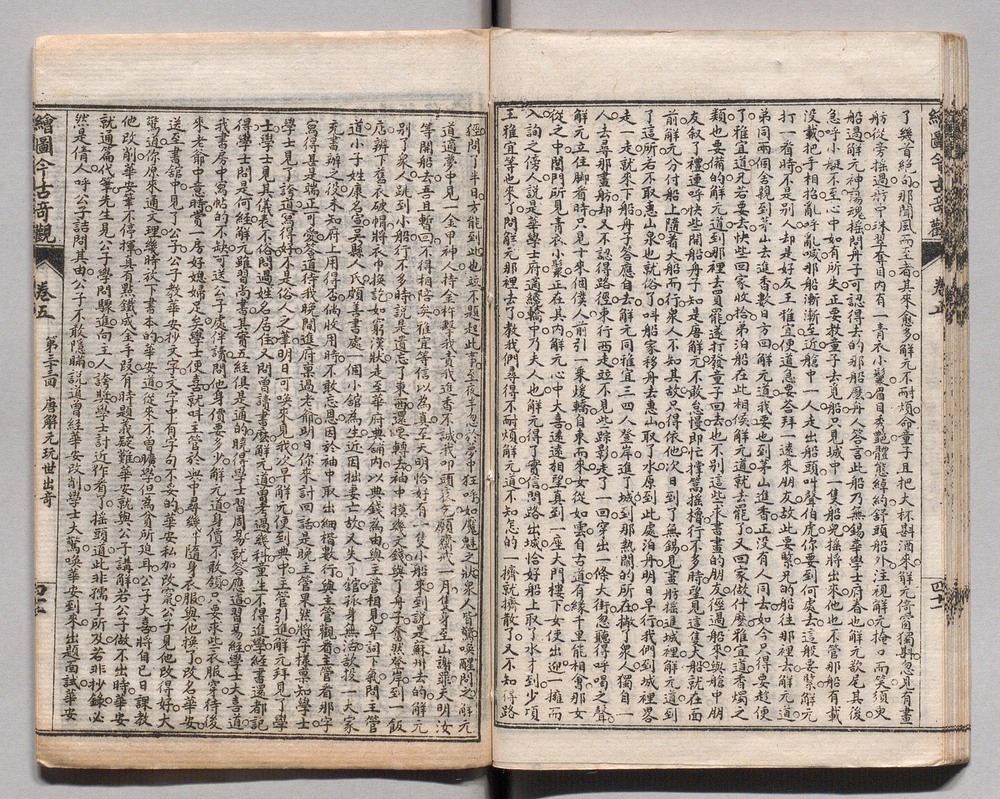 繪圖今古奇觀
了幾首絕的那聞風而至者其來愈多解元不耐煩命童子且把大杯斟酒來解元倚窗獨酌忽見有畫
舫從旁搖過舫中珠翠奪目內有一青衣小鬟眉目秀艷體態綽約舒頭船外注視解元掩口而笑須臾
船過解元神蕩魂搖問舟子可認得去的那船麼舟人答言此船乃無錫華學士府眷也解元欲尾其後
急呼小艇不至心中如有所失正要教童子去覓船只見城中一隻船兒搖將出來他也不管那船有載
沒載把手相招亂呼亂喊那船漸漸至近艙中一人走出船頭叫聲伯虎你要到何處去這般要緊解元
打一看時不是別人却是好友王雅宜便道急要答拜一遠來朋友故此要緊兄的船往那裡去解元道
弟同兩個舍親到茅山去進香數日方回解元道我要也到茅山進香正沒有人同去如今只得要趁便
了雅宜道兄若要去快些回家收拾弟泊船在此相候解元道就去罷了又回家做什麼雅宜道香燭之
類也要備的解元道到那裡去買罷遂打發童子回去也不別這些求書畫的朋友徑過船來與艙中朋
友叙了禮連呼快些開船舟子知是唐解元不敢怠慢即忙撐篙搖櫓行不多時望見這隻大船就在面
前解元分付船上隨着大船而行眾人不知其故只得依他次日到了無錫見畫舫搖進城裡解元道到
了這所右不取惠山泉也就俗了叫船家移舟去惠山取了水原到此處泊舟明日早行我們到城裡畧
走一走就來下船舟子答應自去解元同雅宜三四人登岸進了城到那熱鬧的所在撇了眾人獨自一
人去尋那畫舫却又不認得路徑東行西走並不見些踪影走了一回穿出一條大街忽聽得呼喝之聲
解元立住脚看時只見十來個僕人前引一乘煖轎自東而來女從如雲自古道有緣千里能相會那女
從之中閶門所見青衣小鬟正在其內解元心中大喜遠遠相隨直到一座大門樓下女使出迎一擁而
入詢之傍人說是華學士府適纔轎中乃夫人也解元得了實信問路出城恰好船上取了水才到少頃
王雅宜等也來了問解元那裡去了教我們尋得不耐煩解元道不知怎的一擠就擠散了又不知得路
徑問了半日方能到此也並不題起此事至夜半忽於夢中狂呼如魘魅之狀眾人皆驚喚醒問之解元
道適夢中見一金甲神人持金杵擊我責我進香不誠我叩頭哀乞願齋戒一月隻身至山謝罪天明汝
等開船去吾且暫回不得相陪矣雅宜等信以為真至天明恰好有一隻小船來到說是蘇州去的解元
別了眾人跳到小船行不多時說是遺忘了東西還要轉去袖中摸幾文錢與了舟子奮然登岸到一飯
店辦下舊衣破帽將衣巾換訖如窮漢狀走至華府典舖內以典錢為由與主管相見卑詞下氣問主管
道小子姓康名宣吳縣人氏頗善書處一個小館為生近因拙妻亡故又失了館孤身無活欲投一大家
充書辦之役未知府上用得否倘收用時不敢忘恩因於袖中取出細楷數行與主管觀看主管看那字
寫得甚是端正可愛答道待我晚間進府稟過老爺明日你來討回話是晚主管果然將字樣稟知學士
學士見了誇道寫得好不是俗人之筆明日可喚來見我次早解元便到典中主管引進解元拜見了學
士學士見其儀表不俗問過姓名居住又問曾讀書麼解元道曾考過幾科童生不得進學經書還都記
得學士問是何經解元雖習尚書其實五經俱是通的曉得學士習周易就答應道習易經學士大喜道
我書房中寫帖的不缺可送公子處作伴讀問他身價要多少解元道身價不敢領只要求些衣服穿待後
來老爺中意時賞一房好媳婦足矣學士便喜就叫主管於典中尋幾件隨身衣服與他換了改名華安
送至書館中見了公子公子教華安抄文字文字中有字句不妥的華安私加改竄公子見他改得好大
驚道你原來通文理幾時放下書本的華安道從來不曾曠學但為貧所迫耳公子大喜將自己日課教
他改削華安筆不停揮真有點鐵成金手段有時題義疑難華安就與公子講解若公子做不出時華安
就通篇代筆先生見公子學問驟進向主人誇獎學士討近作看了搖頭道此非孺子所及若非抄錄必
然是倩人呼公子詰問其由公子不敢隱瞞說道曾經華安改削學士大驚喚華安到來出題面試華安
繪圖今古奇觀 卷五 第三十三回 唐解元玩世出奇